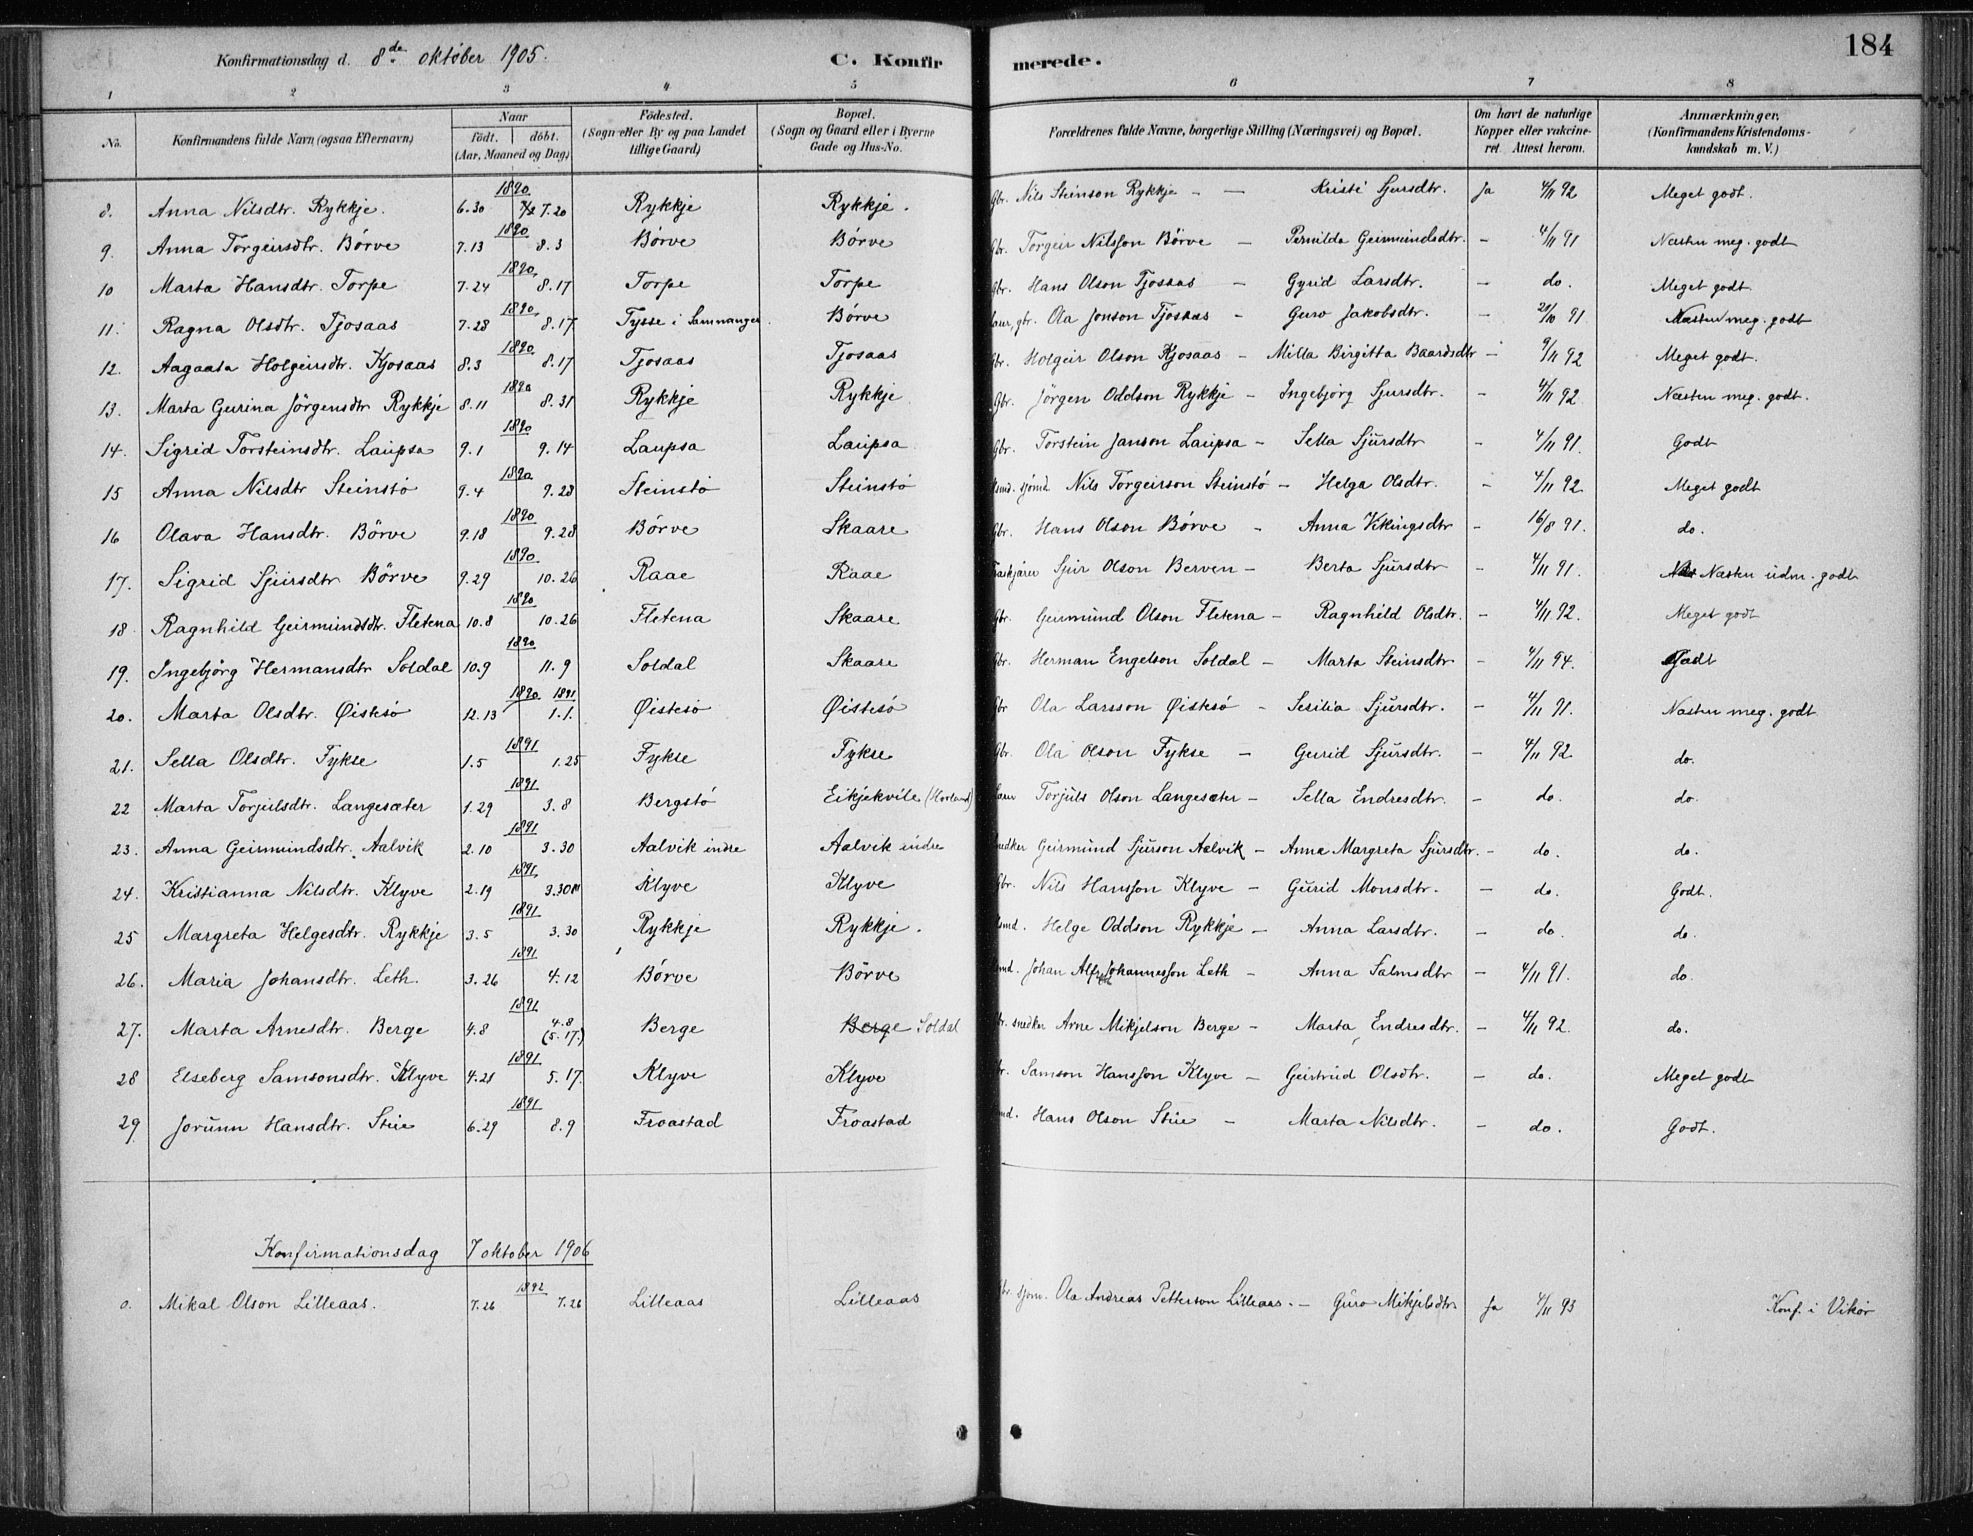 Konfirmationsdag d. 8de oktober 1905. C. Konfirmerede. 184
1 2 3 4 5 6 7 8
No. Konfirmandens fulde Navn (ogsaa Efternavn) Naar født. døbt. (Aar, Maaned og Dag) Fødested. (Sogn eller By og paa Landet tillige Gaard) Bopæl. (Sogn og Gaard eller i Byerne Gade og Hus-No. Forældrenes fulde Navne, borgerlige Stilling (Næringsvei) og Bopæl. Om havt de naturlige Kopper eller vakcineret. Attest herom. Anmærkninger, (Konfirmandens Kristendomskundskab m. V.)
8. Anna Nilsdtr. Rykkje. 1890 6.30 7.20 Rykkje Rykkje. Gbr. Nils Steinson Rykkje - — Kristi Sjursdtr. Ja 4/11 92 Meget godt.
9. Anna Torgeirsdtr. Börve 1890 7.13 8.3 Börve Börve Gbr. Torgeir Nilsson Börve — Pernilda Geirmundsdtr. - 4/11 91 Næsten meg. godt
10 Marta Hansdtr. Torpe 1890 7.24 8.17 Torpe Torpe Gbr. Hans Olson Tjosaas — Gyrid Larsdtr. - do. Meget godt
11. Ragna Olsdtr. Tjosaas 1890 7.28 8.17 Tysse i Samnanger. Börve gbr. Ola Jonson Tjosaas - Guro Jakobsdtr. - 20/10 91 Næsten meg. godt
12. Aagaata Holgeirsdtr. Kjosaas 1890 8.3 8.17 Tjosaas Tjosaas Gbr. Holgeir Olson Kjosaas - Milla Birgitta Baardsdtr - 9/11 92 Meget godt.
13. Marta Gurina Jörgensdtr Rykkje 1890 8.11 8.31 Rykkje Rykkje Gbr. Jörgen Oddson Rykkje - Ingebjörg Sjursdtr. - 4/11 92 Næsten meg. godt.
14. Sigrid Torsteinsdtr. Laupsa 1890 9.1 9.14 Laupsa Laupsa Gbr. Torstein Janson Laupsa - Sella Sjursdtr - 4/11 91. Godt
15 Anna Nilsdtr Steinstö 1890 9.4 9.28 Steinstö Steinstö sjömd. Nils Torgeirson Steinstö - Helga Olsdtr. - 4/11 92 Meget godt
16 Olava Hansdtr. Börve 1890 9.18 9.28 Börve Skaare Gbr. Hans Olson Börve - Anna Vikingsdtr - 16/8 91. do.
17. Sigrid Sjursdtr Börve 1890 9.29 10.26 Raae Raae Sjur Olson Berven - Berta Sjursdtr - 4/11 91. Næsten udm. godt
18 Ragnhild Geirmundsdtr. Fletena 1890 10.8 10.26 Fletena Skaare Gbr. Geirmund Olson Fletena - Ragnhild Olsdtr. - 4/11 92. Meget godt
19. Ingebjörg Hermansdtr Soldal 1890 10.9 11.9 Soldal Skaare Gbr. Herman Engelson Soldal - Marta Steinsdtr - 4/11 94. Godt
20. Marta Olsdtr. Øistesö 1890 1891 12.13 1.1. Øistesö Øistesö Gbr Ola Larsson Øistesö - Sesilia Sjursdtr. - 4/11 91. Næsten meg. godt
21. Sella Olsdtr. Fykse 1891 1.5 1.25 Fykse Fykse Gbr. Ola Olson Fykse - Gurid Sjursdtr. - 4/11 92 do.
22 Marta Torjulsdtr. Langesæter 1891 1.29 3.8 Bergstö Eikjekvile Torjuls Olson Langesæter - Sella Endresdtr. - do. do.
23. Anna Geirmundsdtr. Aalvik 1891 2.10 3.30 Aalvik indre Aalvik indre snedker Geirmund Sjurson Aalvik - Anna Margreta Sjursdtr. - do. do.
24. Kristianna Nilsdtr. Klyve 1891 2.19 3.30 Klyve Klyve Gbr. Nils Hansson Klyve - Gurid Monsdtr. - do. Godt.
25 Margreta Helgesdtr. Rykkje 1891 3.5 3.30 Rykkje Rykkje. Helge Oddson Rykkje - Anna Larsdtr. - do. do.
26. Maria Johansdtr. Leth. 1891 3.26 4.12 Börve Börve Johan Alf Johannesson Leth - Anna Salmsdtr - 4/11 91. do.
27. Marta Arnesdtr. Berge 1891 4.8 4.8 (5.17.) Berge Berge Soldal snedker Arne Mikjelson Berge - Marta Endresdtr. - 4/11 92. do.
28 Elseberg Samsonsdtr. Klyve 1891 4.21 5.17. Klyve Klyve Samson Hansson Klyve - Geirtrud Olsdtr. - do. Meget godt
29 Jorunn Hansdtr. Stue 1891 6.29 8.9 Froastad Froastad Hans Olson Stue - Marta Nilsdtr. - do. Godt.
Konfirmationsdag 7 oktober 1906
0. Mikal Olson Lilleaas. 1892 7.26 7.26 Lilleaas Lilleaas sjøm. Ola Andreas Petterson Lilleaas. - Guro Mikjelsdtr Ja 4/11 93 Konf. i Vikör